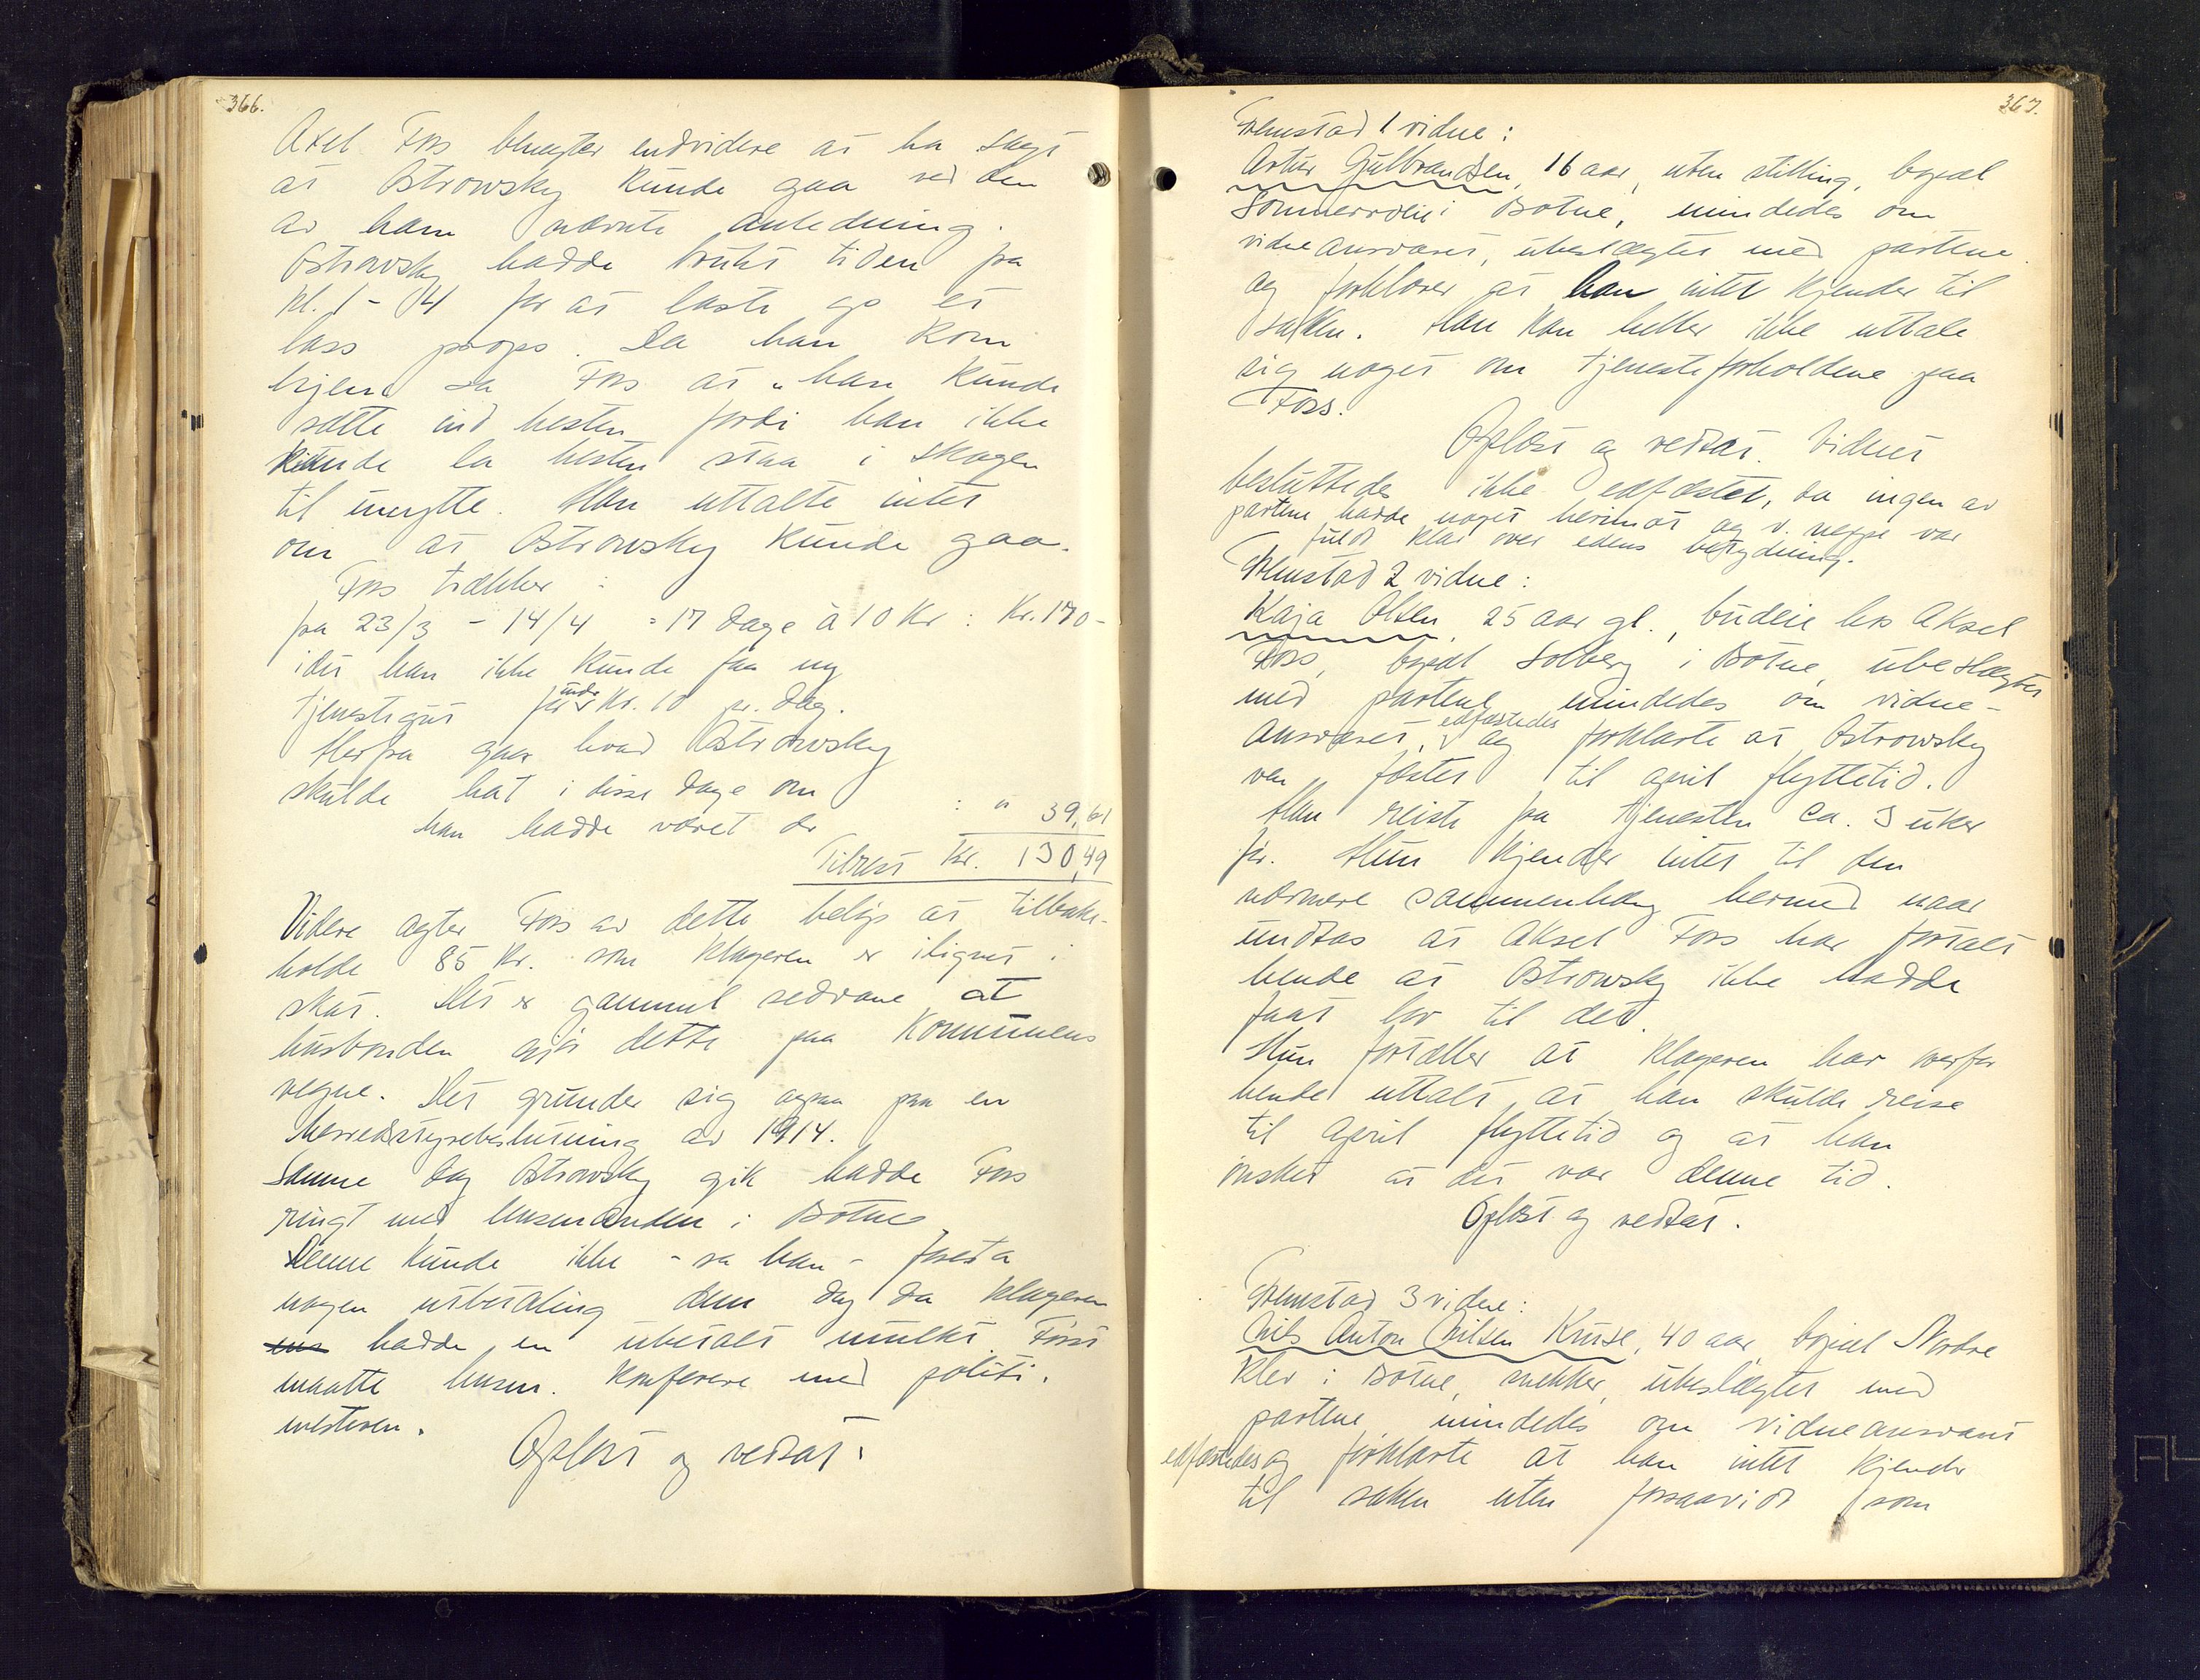 366.
Axel Foss benegter endvidere at ha sagt
at Ostrowsky kunde gaa ved den
av ham nævnte anledning.
Ostrowsky hadde brukt tiden fra
kl. 1 - 4 for at laste op et
lass props. Da han kom
hjem sa Foss at "han kunde
sætte ind hesten fordi han ikke
kunde la hesten staa i skogen
til unytte. Han uttalte intet
om at Ostrowsky kunde gaa.
Foss trækker :
fra 23/3 - 14/4 = 17 dage à 10 Kr : Kr. 170-
idet han ikke kunde faa ny
tjenestgut for under Kr. 10 pr. dag.
Herfra gaar hvad Ostrowsky
skulde hat i disse dage om
han hadde været der : " 39,61
Tilrest Kr. 130,49
Videre agter Foss av dette beløp at tilbake-
holde 85 Kr. som klageren er ilignet i
skat. Det er gammel sedvane at
husbonden gjør dette paa Kommunens
vegne. Det grunder sig ogsaa paa en
herredsstyrebeslutning av 1914.
Samme dag Ostrowsky gik hadde Foss
ringt med lensmanden i Botne
Denne kunde ikke - sa han - foreta
nogen utbetaling den dag da klageren
hadde en ubetalt mulkt. Først
maatte lensm. konferere med politi-
mesteren.
Oplæst og vedtat.
367.
Fremstod 1 vidne :
Artur Gulbrandsen, 16 aar, uten stilling, bopæl
Sommerroen i Botne, mindedes om
vidneansvaret, ubeslægtet med partene
og forklarer at han intet kjender til
saken. Han kan heller ikke uttale
sig noget om tjenesteforholdene paa
Foss.
Oplæst og vedtat. Vidnet
besluttedes ikke edfæstet, da ingen av
partene hadde noget herimot og v. neppe var
fuldt klar over edens betydning.
Fremstod 2 vidne :
Kaja Olsen, 25 aar gl., budeie hos Aksel
Foss, bopæl Solberg i Botne, ubeslægtet
med partene, mindedes om vidne-
ansvaret, edfæstedes og forklarte at Ostrowsky
var fæstet til april flyttetid.
Han reiste fra tjenesten ca. 3 uker
før. Hun kjender intet til den
nærmere sammenhæng hermed naar
undtas at Aksel Foss har fortalt
hende at Ostrowsky ikke hadde
faat lov til det.
Hun fortæller at klageren har overfor
hende uttalt at han skulde reise
til april flyttetid og at han
ønsket at det var denne tid.
Oplæst og vedtat.
Fremstod 3 vidne :
Nils Anton Nilsen Kruse, 40 aar bopæl Nordre
Klev i Botne, snekker, ubeslægtet med
partene, mindedes om vidneansvaret
edfæstedes og forklarte at han intet kjender
til saken uten forsaavidt som